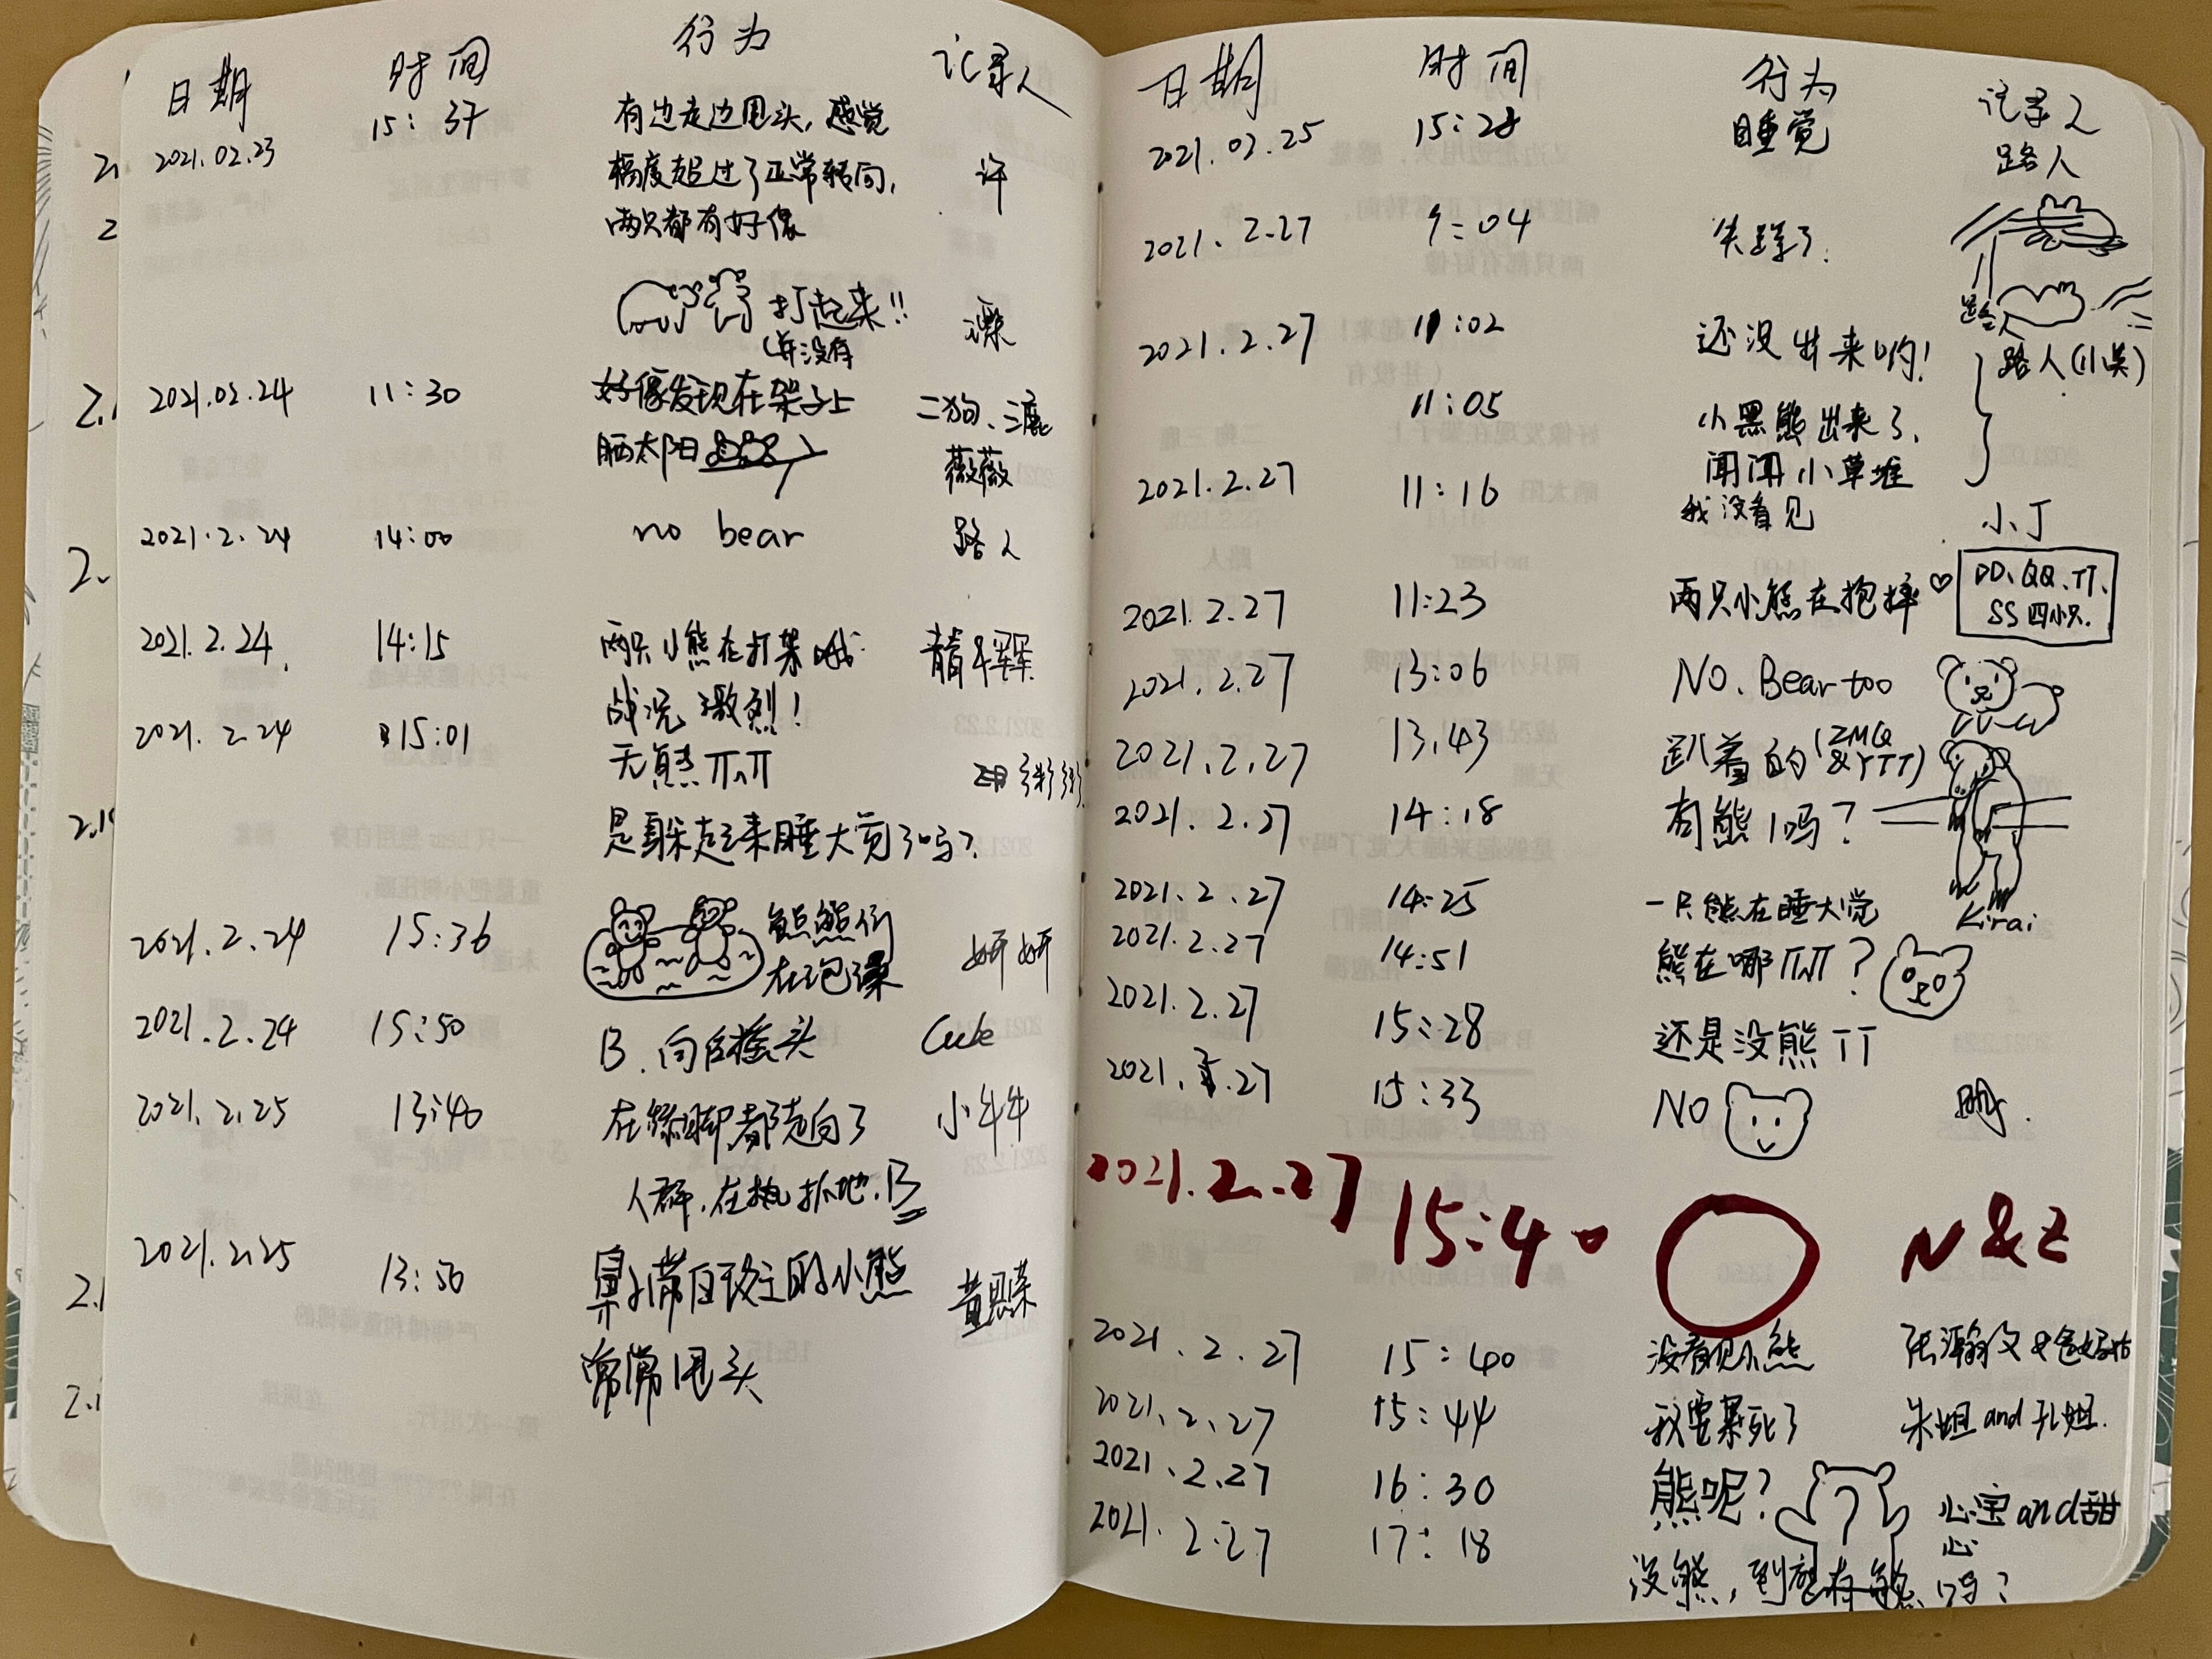 日期 时间 行为 记录人
2021.02.23 15:37 有边走边甩头,感觉
幅度超过了正常转向, 许
两只都有好像
打起来!! 漯
(并没有
2021.02.24 11:30 好像发现在架子上 二狗、三鹿
晒太阳 薇薇
2021.2.24 14:00 no bear 路人
2021.2.24. 14:15 两只小熊在打架哦
战况激烈!
2021.2.24 15:01 无熊TT^TT
是躲起来睡大觉了吗?
2021.2.24 15:36 熊们 妍妍
在泡澡
2021.2.24 15:50 B.向后摇头 Cube
2021.2.25 13:40 在 都走向了 小牛牛
人群.在抓地.B
2021.2.25 13:50 鼻子带白斑的小熊
常常甩头
日期 时间 行为 记录人
2021.02.25 15:28 睡觉 路人
2021.2.27 9:04 失踪了. 路人
2021.2.27 11:02 还没出来哟! 路人(小吴)
11:05 小黑熊出来了,
闻闻小草堆
2021.2.27 11:16 我没看见 小丁
2021.2.27 11:23 两只小熊在抱摔♡ DD、QQ、TT、
SS四小只.
2021.2.27 13:06 NO. Bear too
2021.2.27 13.43 趴着的(ZMQ
&YTT)
2021.2.27 14:18 有熊吗?
2021.2.27 14:25 一只熊在睡大觉 Kirai
2021.2.27 14:51 熊在哪TT^TT?
2021.2.27 15:28 还是没熊TT
2021.2.27 15:33 NO
2021.2.27 15:40 N&Z
2021.2.27 15:40 没看见小熊 张瀚文&爸妈姑
2021.2.27 15:44 我要暴死了 朱姐and孔姐.
2021.2.27 16:30 熊呢? ? 心宝and甜
心
2021.2.27 17:18 没熊,到底有熊吗?